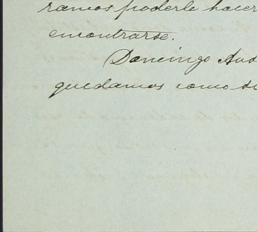 ramos poderle hacer
encontrarse.
Domingo And
quedamos como si